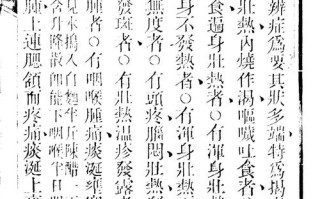 辨症爲要其狀多端特爲揭
壯熱內燒作渴嘔噦吐食者
食遍身壯熱者○有渾身壯
身不發熱者○有渾身壯熱
無度者○有頭疼腦悶壯熱
發斑者○有壯熱温疹發露
腫者○有咽喉腫痛痰涎壅
含升降散卽能下咽半日
腫上連腮頷而疼痛痰涎上